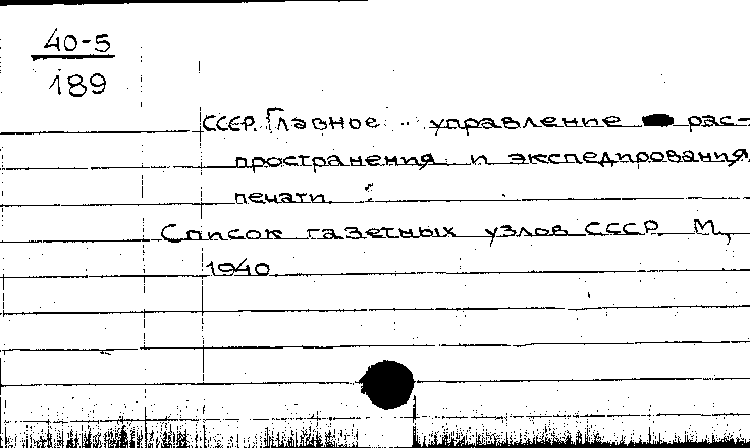 40-5
189
СССР. Главное управление рас-
пространения и экспедирования
печати.
Список газетных узлов СССР. М.,
1940.